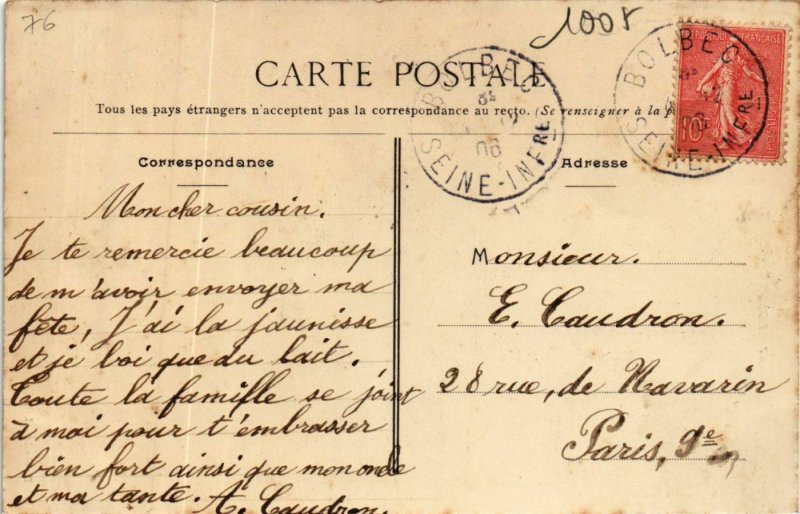 76
1008
CARTE POSTALE
Tous les pays étrangers n'acceptent pas la correspondance au recto. (Se renseigner à la p
BOLBEC
06
SEINE-INFRE
BOLBEC
06
SEINE-INFRE
RÉPUBLIQUE FRANÇAISE
10c
POSTES
Correspondance
Mon cher cousin.
Je te remercie beaucoup
de m'avoir envoyer ma
fête, J'ai la jaunisse
et je boi que du lait.
Toute la famille se joint
à moi pour t'embrasser
bien fort ainsi que mon oncle
et ma tante. A. Caudron.
Adresse
Monsieur.
E. Caudron.
28 rue, de Navarin
Paris, 9e